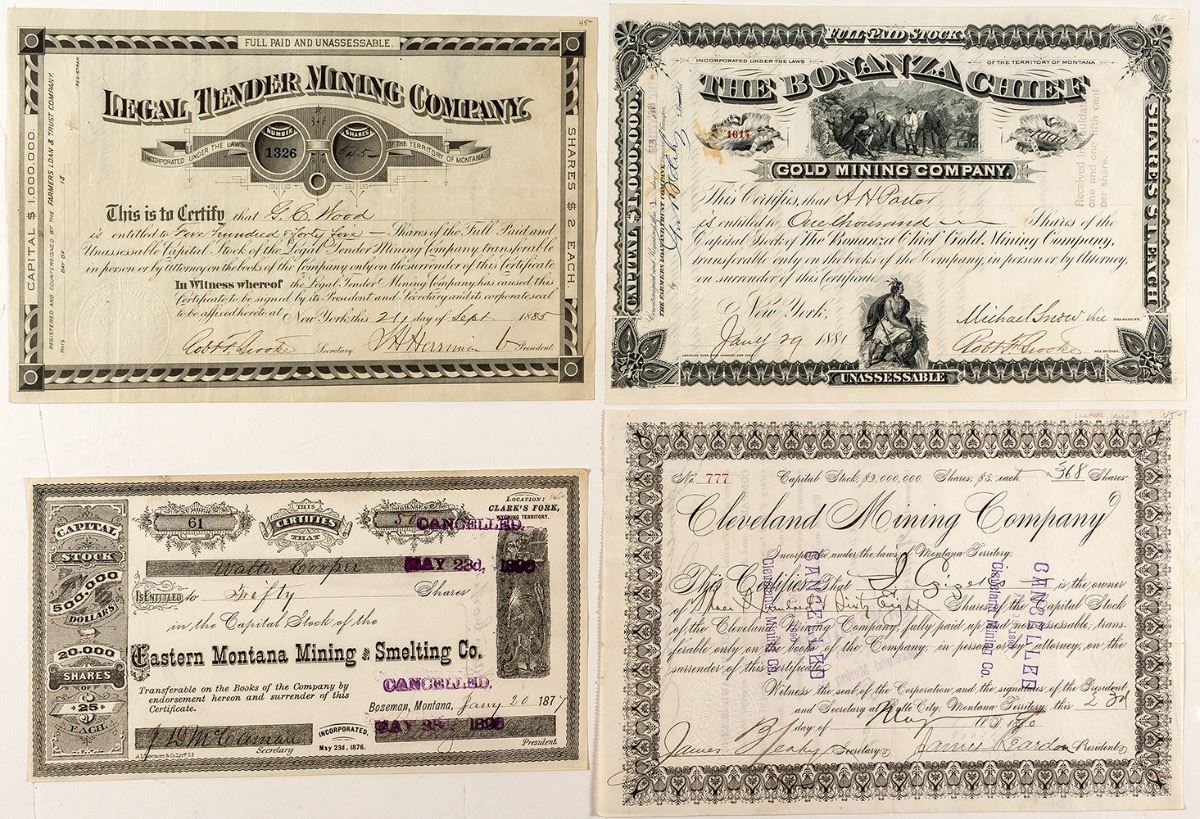 45-
FULL PAID AND UNASSESSABLE.
LEGAL TENDER MINING COMPANY.
NUMBER
1326
SHARES
545-
INCORPORATED UNDER THE LAWS
OF THE TERRITORY OF MONTANA.
CAPITAL $ 1.000.000.
REGISTERED AND COUNTERSIGNED BY THE FARMERS LOAN & TRUST COMPANY.
THIS DAY OF 18
REGISTRAR
SHARES $ 2 EACH
This is to Certify that G. C. Wood
is entitled to Five Hundred & forty five — Shares of the Full Paid and
Unassessable Capital Stock of the Legal Tender Mining Company, transferable
in person or by Attorney on the books of the Company only on the surrender of this Certificate.
In Witness whereof the Legal Tender Mining Company has caused this
Certificate to be signed by its President and Secretary and its corporate seal
to be affixed hereto at New York this 21 day of Sept 1885
Secretary.
President.
165-
FULL PAID STOCK
INCORPORATED UNDER THE LAWS
OF THE TERRITORY OF MONTANA
THE BONANZA CHIEF
1617
1000
GOLD MINING COMPANY.
CAPITAL $1,000,000.
SHARES $1 EACH
THE FARMERS LOAN AND TRUST COMPANY
one and one tenth cent
per share.
This Certifies, that A H Paslor
is entitled to One thousand Shares of the
Capital Stock of The Bonanza Chief Gold Mining Company,
transferable only on the books of the Company, in person or by Attorney,
on surrender of this Certificate.
New York,
Jany 29 1881
Michael Snow Vice
PRESIDENT.
SECRETARY.
UNASSESSABLE
CAPITAL
STOCK
500,000
DOLLARS
20.000
SHARES
OF
$25
EACH.
61
THIS
CERTIFIES
THAT
LOCATION:
CLARK'S FORK,
WYOMING TERRITORY.
165-
CANCELLED.
Walter Cooper
MAY 23d, 1896
IS ENTITLED to Fifty Shares
in the Capital Stock of the
Eastern Montana Mining & Smelting Co.
Transferable on the Books of the Company by
endorsement hereon and surrender of this
Certificate.
CANCELLED.
Bozeman, Montana, Jany 20 1877
INCORPORATED,
May 23d, 1876.
Secretary
President.
45-
No. 777
Capital Stock, $2,000,000. Shares, $5. each
368 Shares
Cleveland Mining Company
Incorporated under the laws of Montana Territory.
This Certifies That is the owner
of Three Hundred & Sixty Eight Shares of the Capital Stock
of the Cleveland Mining Company, fully paid up and non-assessable, trans-
ferable only on the books of the Company, in person or by attorney, on the
surrender of this certificate.
Witness the seal of the Corporation and the signatures of the President
and Secretary at Butte City, Montana Territory, this 23d
day of May
James Reardon President
Secretary
CANCELLED
Cleveland Mining Co.
CANCELLED
Cleveland Mining Co.